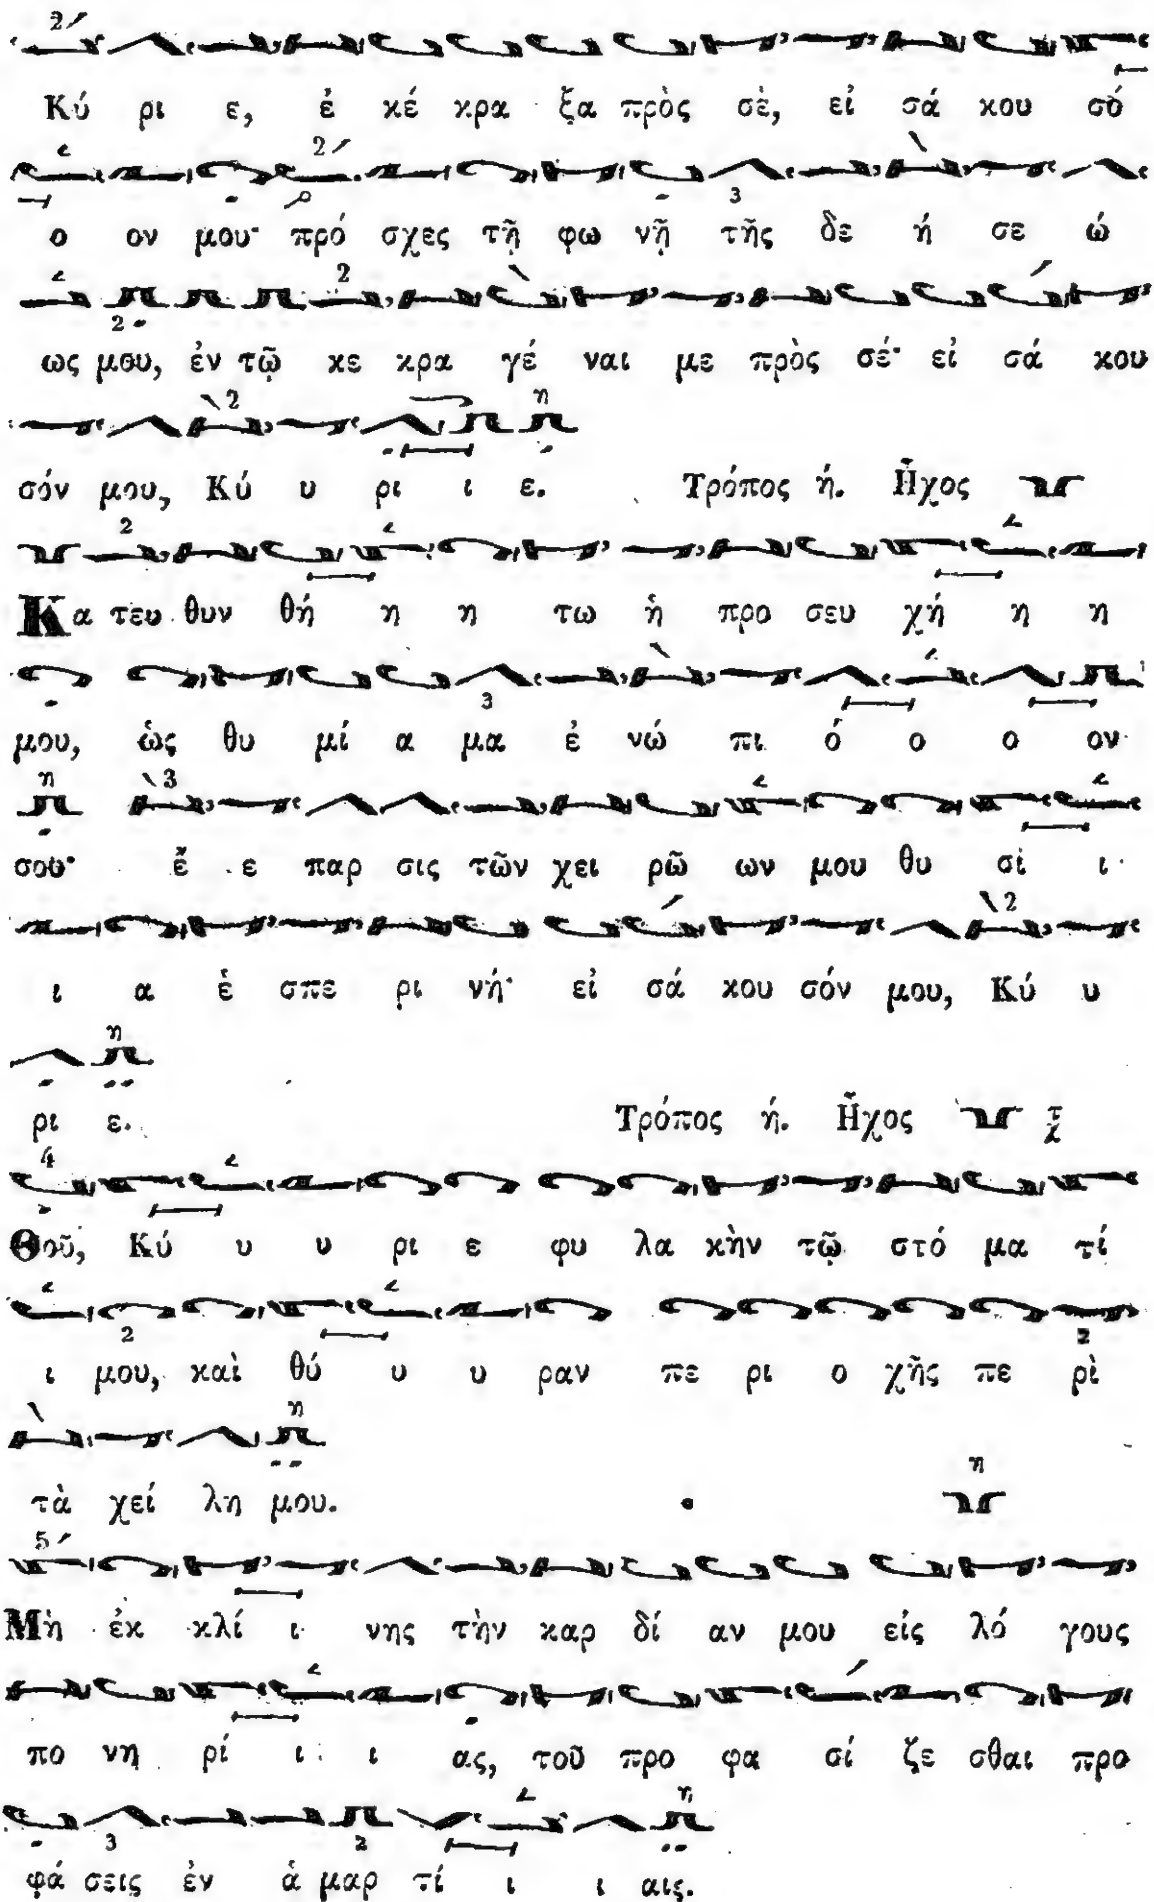 Κύ ρι ε, ἐ κέ κρα ξα πρὸς σὲ, εἰ σά κου σό
ο ον μου· πρό σχες τῇ φω νῇ τῆς δε ή σε ώ
ως μου, ἐν τῷ κε κρα γέ ναι με πρὸς σέ· εἰ σά κου
σόν μου, Κύ υ ρι ι ε. Τρόπος ή. Ἦχος
Κα τευ θυν θή η η τω ἡ προ σευ χή η η
μου, ὡς θυ μί α μα ἐ νώ πι ό ο ο ον
σου· ἔ ε παρ σις τῶν χει ρῶ ων μου θυ σί ι
ι α ἑ σπε ρι νή· εἰ σά κου σόν μου, Κύ υ
ρι ε. Τρόπος ή. Ἦχος
Θοῦ, Κύ υ υ ρι ε φυ λα κὴν τῷ στό μα τί
ι μου, καὶ θύ υ υ ραν πε ρι ο χῆς πε ρὶ
τὰ χεί λη μου.
Μὴ ἐκ κλί ι νης τὴν καρ δί αν μου εἰς λό γους
πο νη ρί ι ι ας, τοῦ προ φα σί ζε σθαι προ
φά σεις ἐν ἁ μαρ τί ι ι αις.